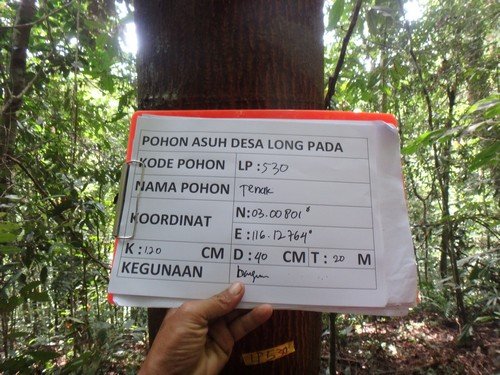 POHON ASUH DESA LONG PADA
KODE POHON LP : 530
NAMA POHON Tenak
KOORDINAT N : 03.00801°
E : 116.12764°
K : 120 CM D : 40 CM T : 20 M
KEGUNAAN
LP 530